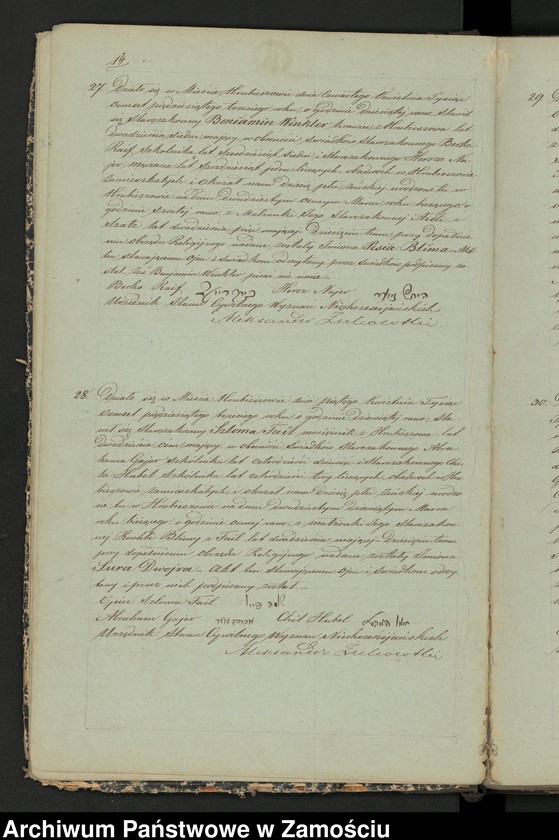 14
27. Działo się w Mieście Hrubieszowie dnia czwartego Kwietnia Tysiąc
osmset pięćdziesiątego trzeciego roku o godzinie dziesiątej rano, Stawił
się Starozakonny Beniamin Winkler krawiec z Hrubieszowa lat
dwadzieścia siedm mający, w obecności świadków Starozakonnego Berka
Raif Szkolnika lat siedm i Starozakonnego Hersz Na-
jer lat liczących, obudwóch w Hrubieszowie
zamieszkałych i okazał nam Dziecię płci żeńskiej urodzone tu w
Hrubieszowie na dniu dwudziestym osmym Marca roku bieżącego o
godzinie szóstej rano, z Małżonki Jego Starozakonnej z
lat dwadzieścia pięć mającej. Dziecięciu temu przy dopełnie-
niu Obrzędu Religijnego nadane zostały Imiona Pesia Blima. Akt
ten stawającemu Ojcu i świadkom odczytany, przez świadków podpisany zo-
stał, zaś Beniamin Winkler pisać nie umie.
Berko Raif Hersz Najer
Urzędnik Stanu Cywilnego Wyznań Niechrześcijańskich
Aleksander Żukowski
28. Działo się w Mieście Hrubieszowie dnia piątego Kwietnia Tysiąc
osmset pięćdziesiątego trzeciego roku o godzinie dziesiątej rano, Sta-
wił się Starozakonny Szloma Fail, mosiężnik z Hrubieszowa lat
dwadzieścia osm mający, w obecności świadków Starozakonnego Abra-
hama Gajer Szkolnika lat czterdzieści dziewięć i Starozakonnego Chi-
la Hubel Szkolnika lat czterdzieści trzy liczących, obudwóch w Hru-
bieszowie zamieszkałych i okazał nam Dziecię płci żeńskiej urodzo-
ne tu w Hrubieszowie na dniu dwudziestym dziewiątym Marca
roku bieżącego o godzinie osmej rano, z małżonki Jego Starozakon-
nej Ruchli Blimy z Fail lat dwadzieścia mającej. Dziecięciu temu
przy dopełnieniu Obrzędu Religijnego nadane zostały Imiona
Sura Dwojra. Akt ten Stawającemu Ojcu i świadkom odczy-
tany i przez nich podpisany został.
Ojciec Szloma Fail
Abraham Gajer Chil Hubel
Urzędnik Stanu Cywilnego Wyznań Niechrześcijańskich
Aleksander Żukowski
29.
30.
Archiwum Państwowe w Zamościu